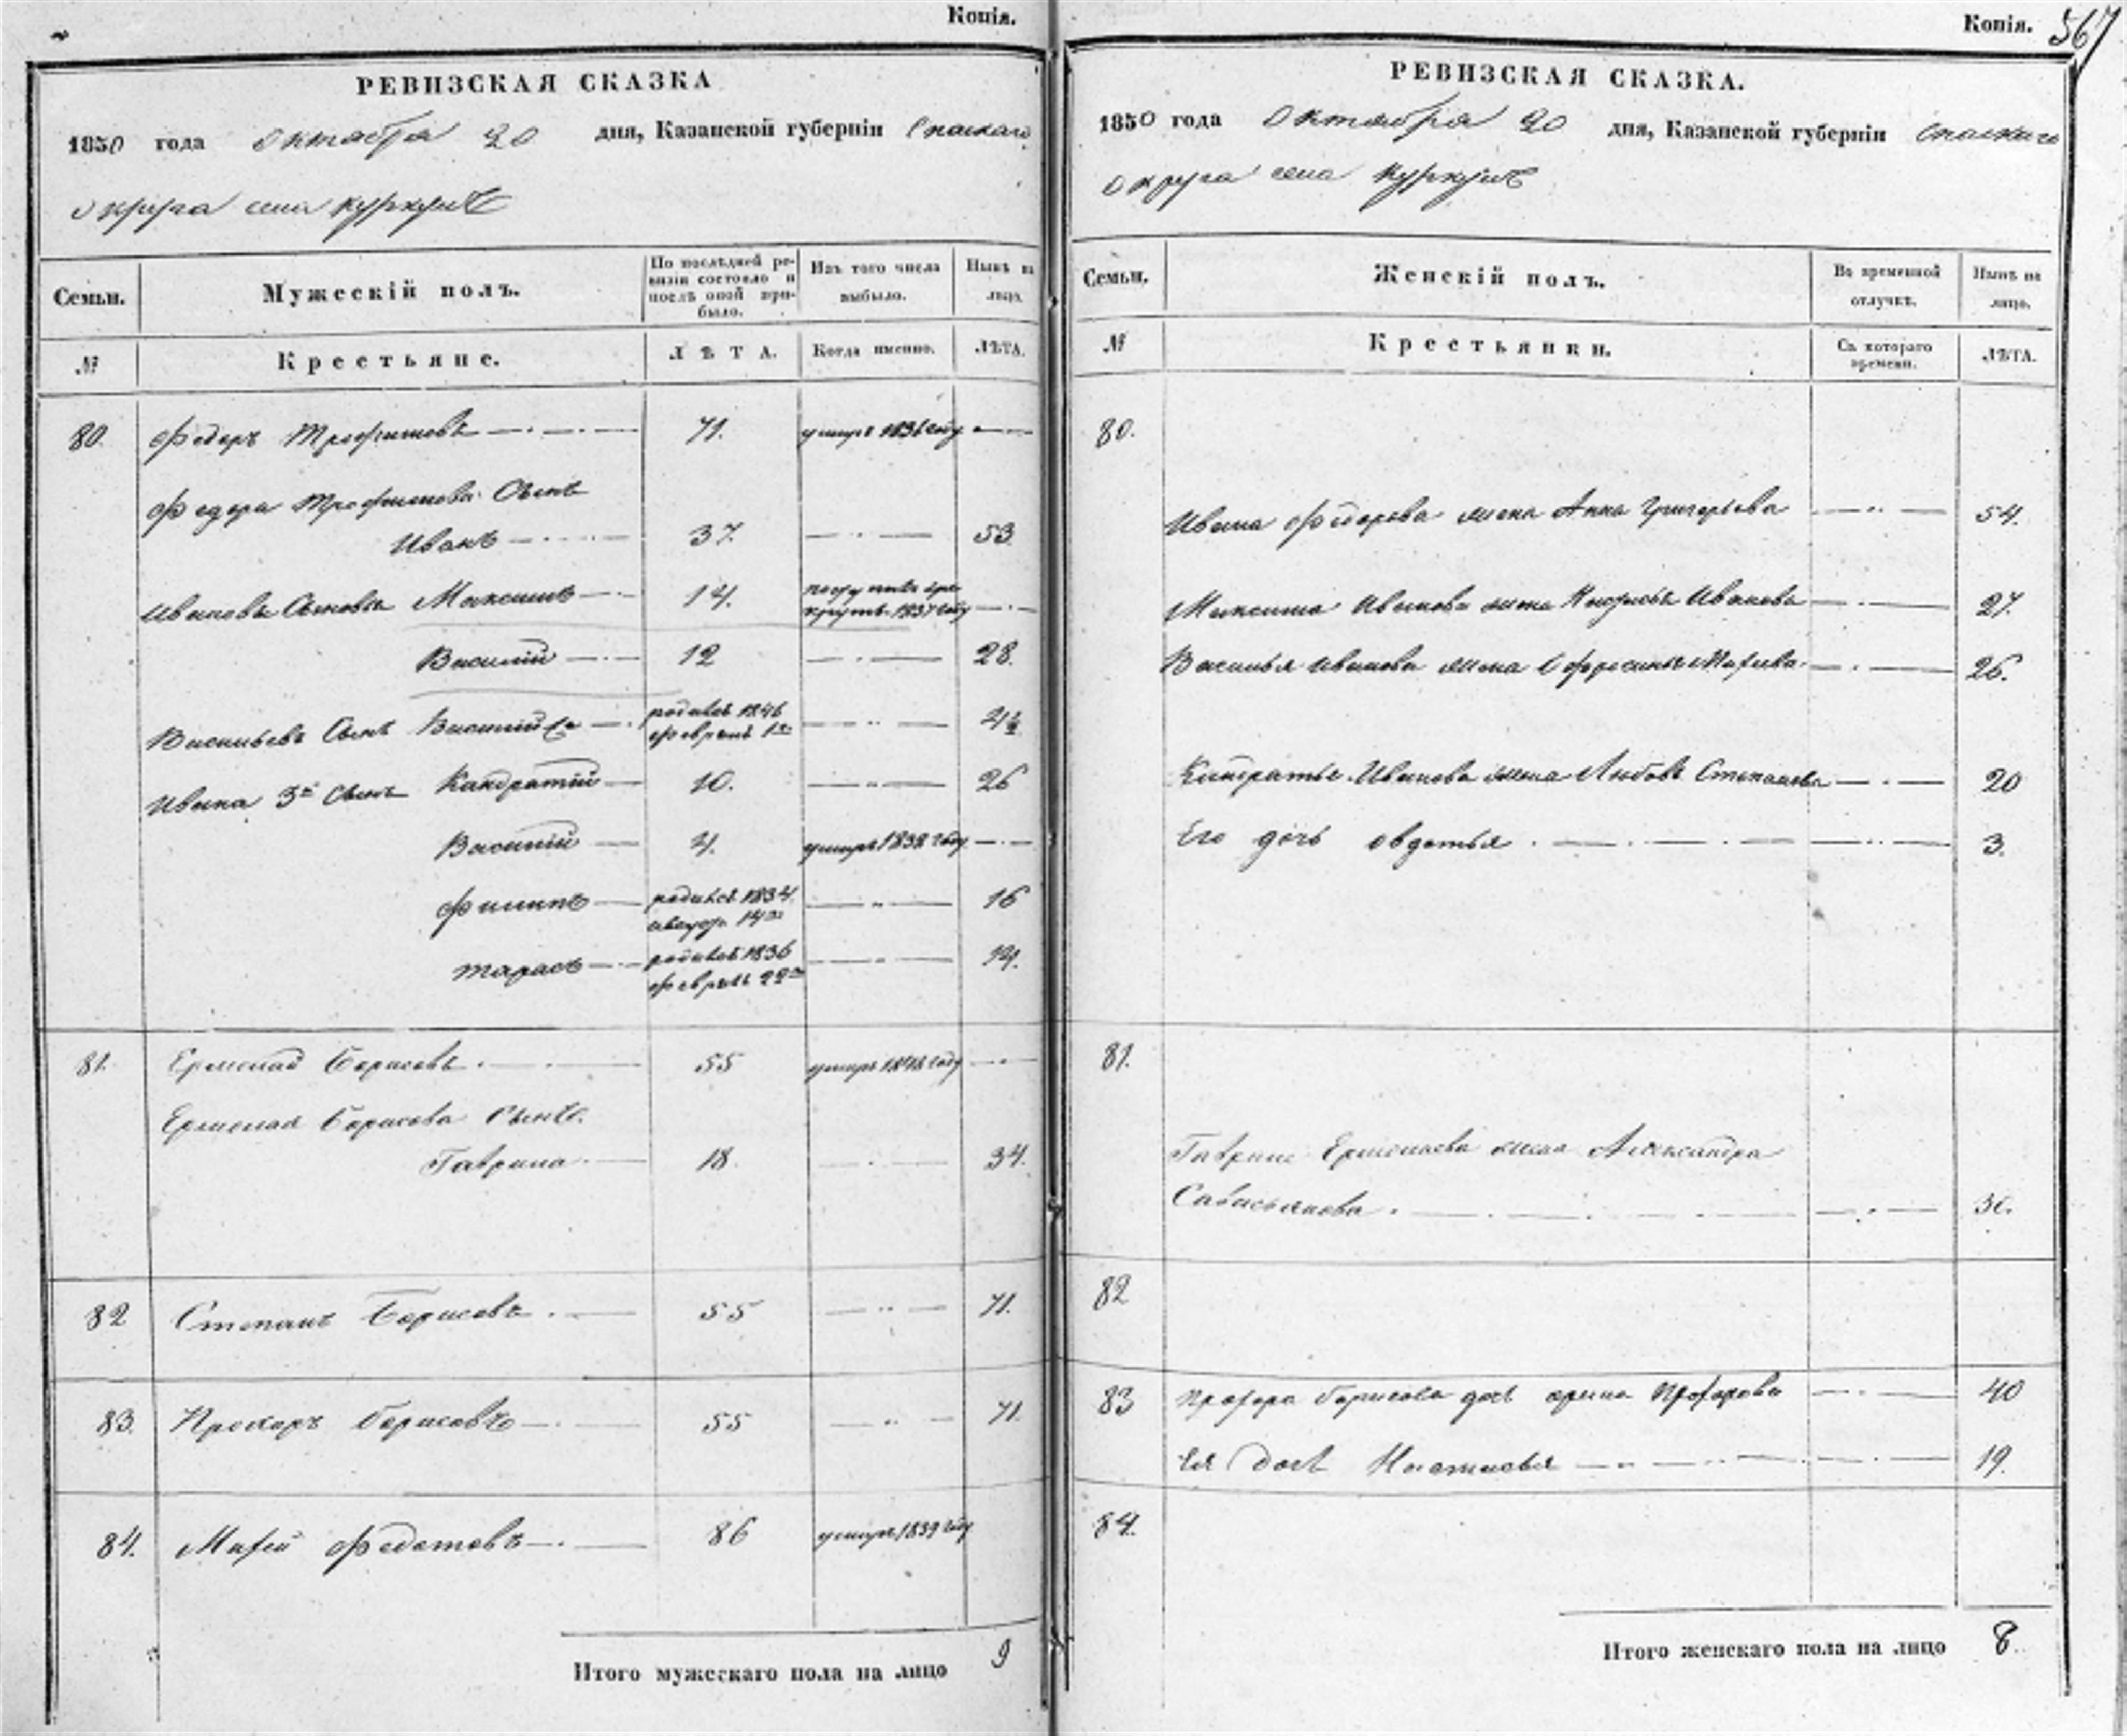 Копія.
РЕВИЗСКАЯ СКАЗКА
1850 года октября 20 дня, Казанской губерніи Спаскаго
округа села
Семьи.
Мужескій полъ.
По послѣдней ре-
визіи состояло и
послѣ оной при-
было.
Изъ того числа
выбыло.
Нынѣ на
лицо.
№
Крестьяне.
ЛѢТА.
Когда именно.
ЛѢТА.
80. Федоръ Трофимовъ 71. умеръ 1836 году
Федора Трофимова Сынъ
Иванъ 37. 53.
Ивановы Сыновья Максимъ 14. 1837 году
Василий 12 28.
Васильевъ Сынъ Василий родился 1846 4½
февраля
Ивана 3й Сынъ Кандратий 10. 26
Василий 4. умеръ 1832 году
Филипъ родился 1834 16
Тарасъ родился 1836 14.
февраля 22го
81. Ермолай Борисовъ 55 умеръ 1848 году
Ермолая Борисова Сынъ.
Гаврила 18. 34.
82 Степанъ Борисовъ 55 71.
83. Прохоръ Борисовъ 55 71.
84. Мафей Федотовъ 86 умеръ 1839 году
Итого мужескаго пола на лицо 9
Копія. 567
РЕВИЗСКАЯ СКАЗКА.
1850 года Октября 20 дня, Казанской губерніи Спаскаго
округа села
Семьи.
Женскій полъ.
Во временной
отлучкѣ.
Нынѣ на
лицо.
№
Крестьянки.
Съ котораго
времени.
ЛѢТА.
80.
Ивана Федорова жена Анна Григорьева 54.
Максима Иванова жена Иванова 27.
Василья Иванова жена Мафеева 26.
Кандратья Иванова жена Любовь Степанова 20
Его дочь овдотья 3.
81.
Гаврилы Ермолаева жена Александра
Савастьянова 30.
82
83 Прохора Борисова дочь арина Прохорова 40
Ея дочь Настасья 19.
84.
Итого женскаго пола на лицо 8.